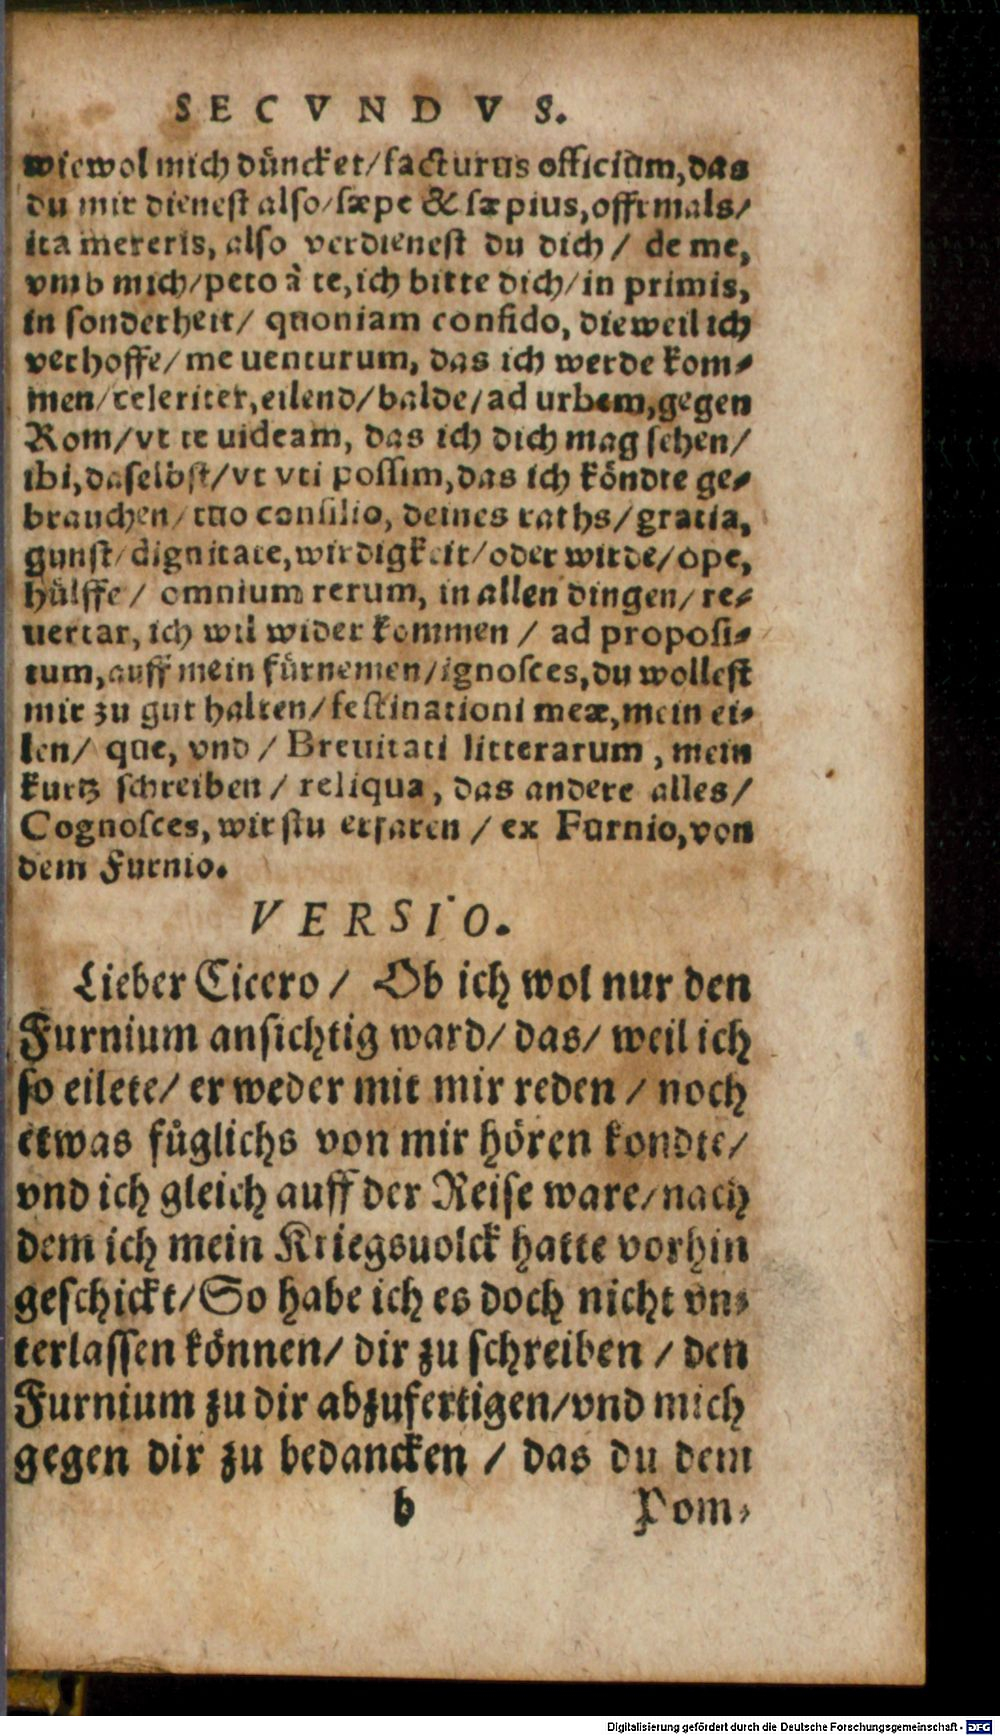 SECVNDVS.
wiewol mich düncket/facturus officium,das
du mir dienest also/sæpe & sæpius,offtmals/
ita mereris, also verdienest du dich / de me,
vmb mich/peto à te,ich bitte dich/in primis,
in sonderheit/ quoniam confido, dieweil ich
verhoffe/me uenturum, das ich werde kom⸗
men/celeriter,eilend/balde/ad urbem,gegen
Rom/vt te uideam, das ich dich mag sehen/
ibi,daselbst/vt vti possim,das ich köndte ge⸗
brauchen/tuo consilio, deines raths/gratia,
gunst/dignitate,wirdigkeit/oder wirde/ope,
hülffe/ omnium rerum, in allen dingen/re⸗
uertar, ich wil wider kommen / ad proposi⸗
tum,auff mein fürnemen/ignosces,du wollest
mir zu gut halten/festinationi meæ,mein ei⸗
len/ que, vnd / Breuitati litterarum, mein
kurtz schreiben / reliqua, das andere alles/
Cognosces, wirstu erfaren / ex Furnio,von
dem Furnio.
VERSIO.
Lieber Cicero / Ob ich wol nur den
Furnium ansichtig ward/ das/ weil ich
so eilete/ er weder mit mir reden / noch
etwas füglichs von mir hören kondte/
vnd ich gleich auff der Reise ware/nach
dem ich mein Kriegsuolck hatte vorhin
geschickt/So habe ich es doch nicht vn⸗
terlassen können/ dir zu schreiben / den
Furnium zu dir abzufertigen/vnd mich
gegen dir zu bedancken / das du dem
b Pom⸗
Digitalisierung gefördert durch die Deutsche Forschungsgemeinschaft - DFG